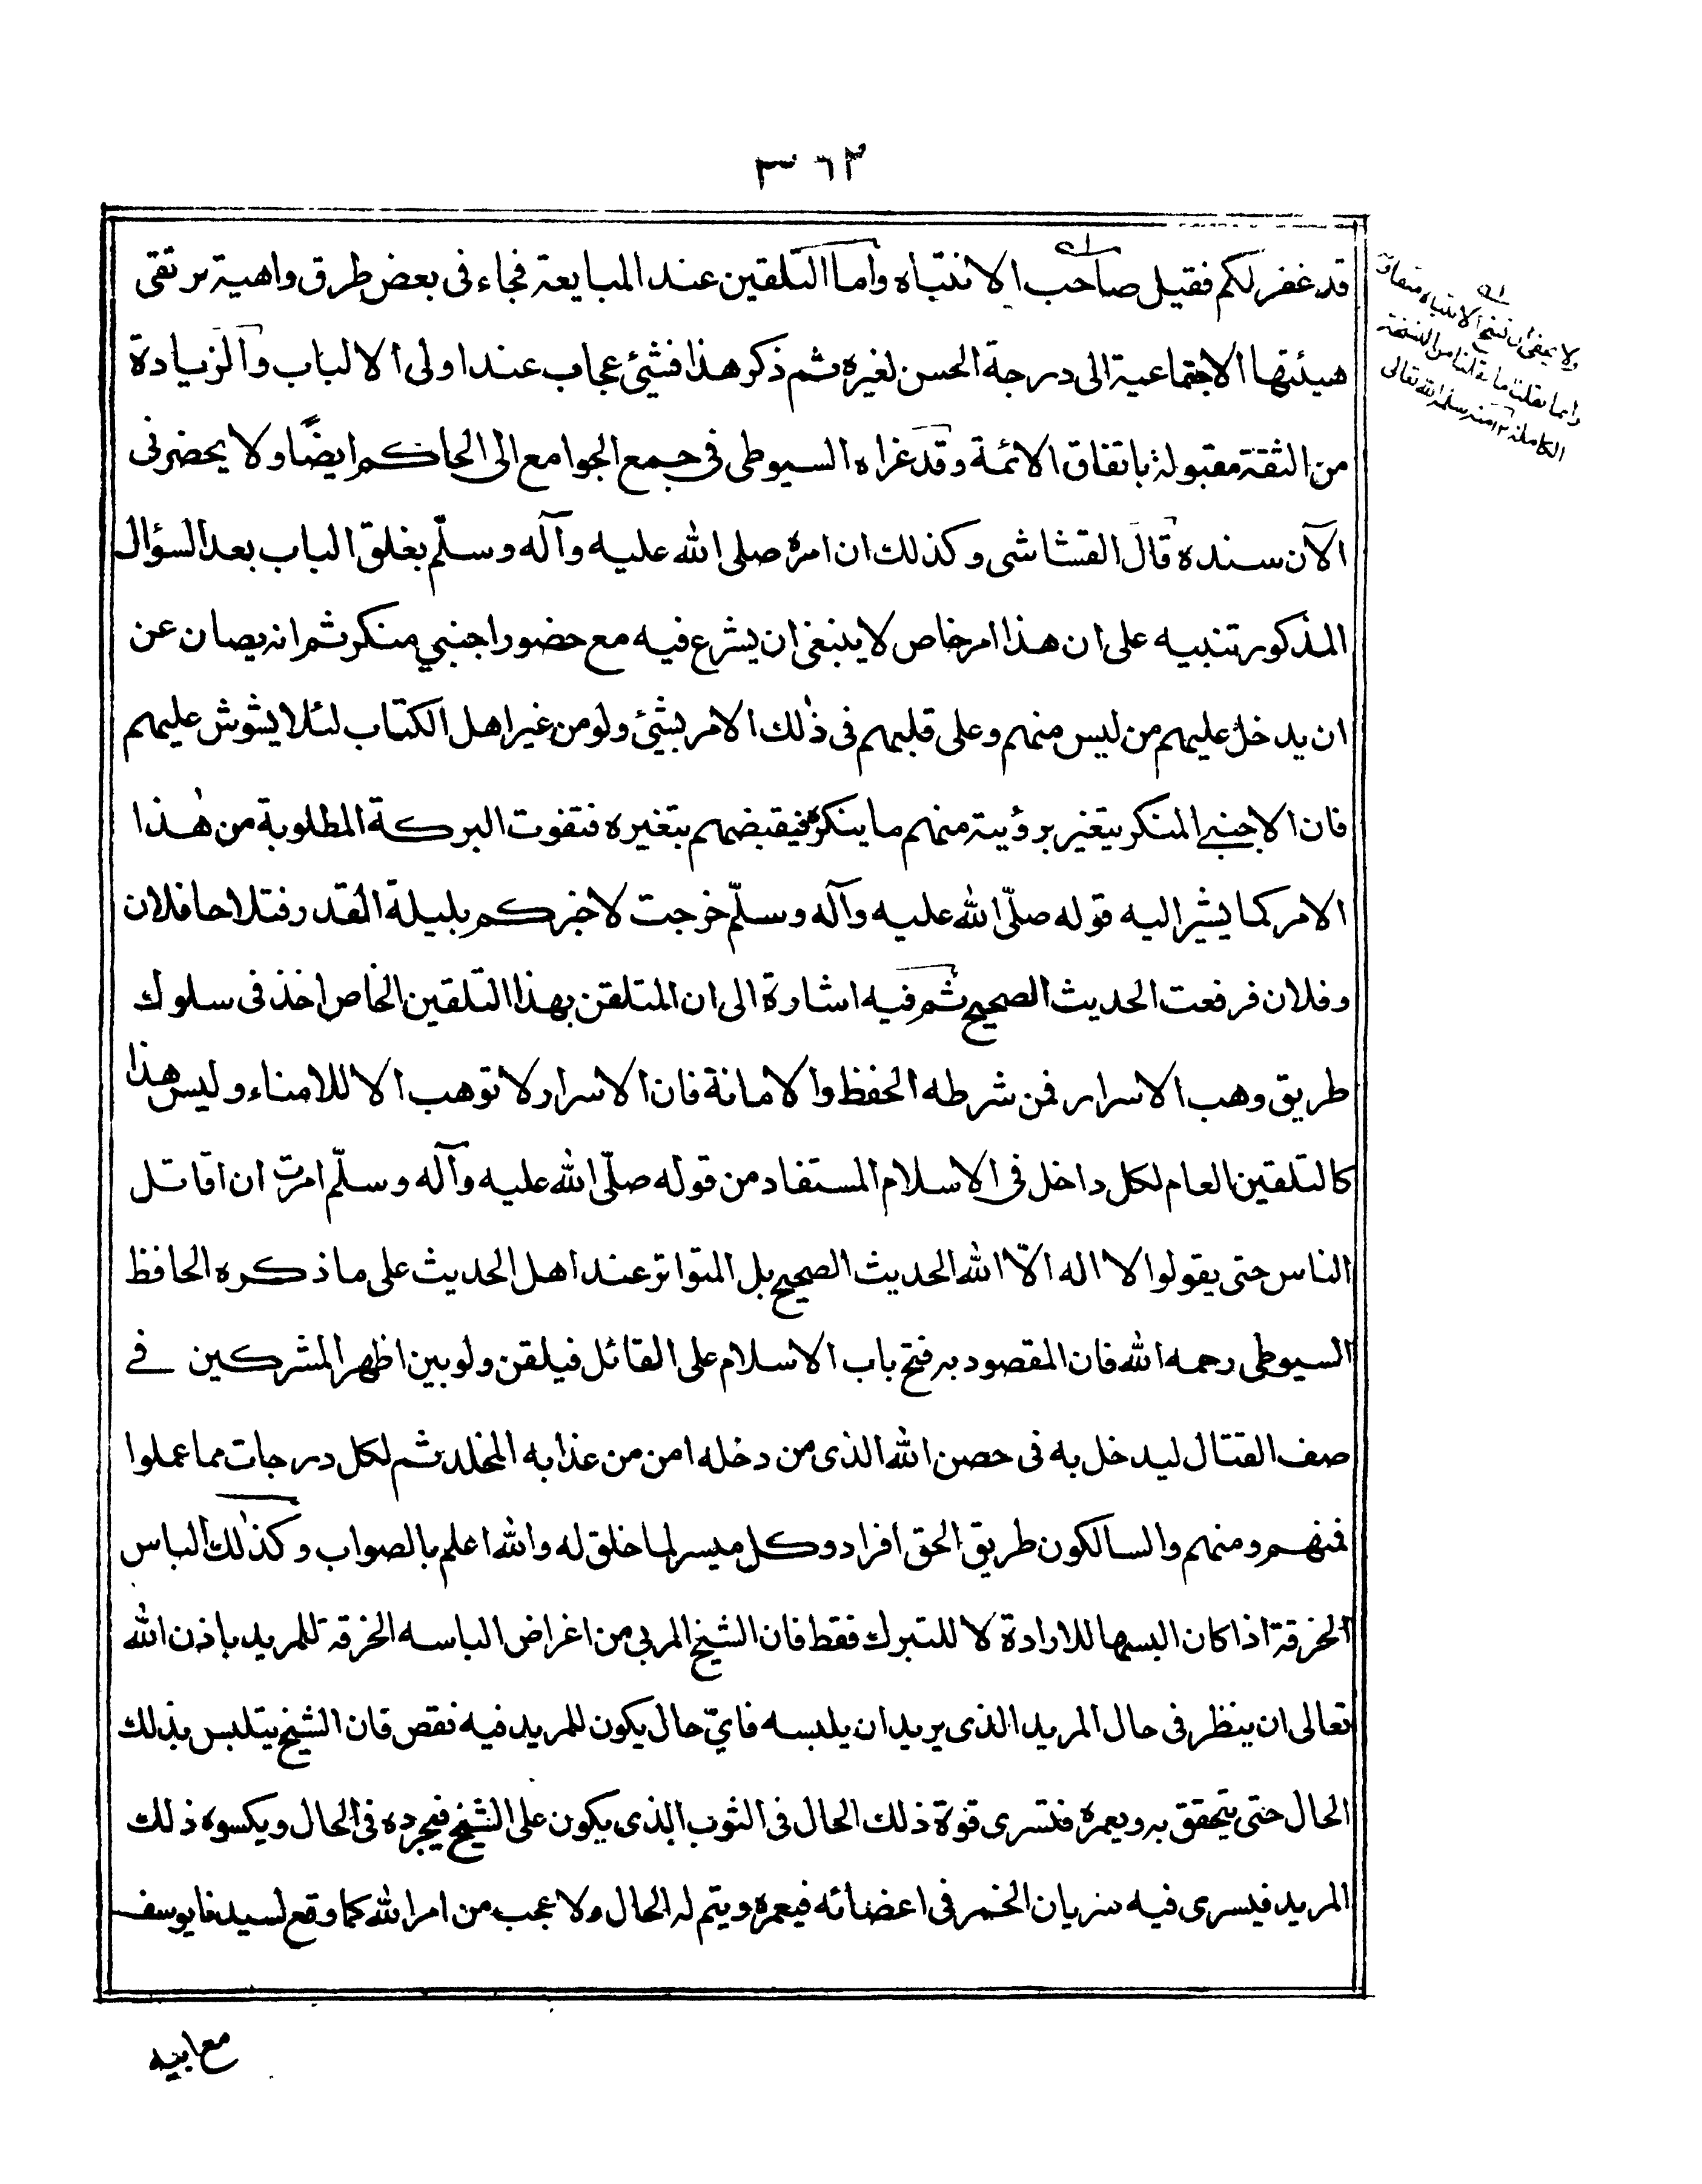 ٣٦٣
قد غفر لكم فقيل صاحب الانتباه واما التلقين عند المبايعة فجاء فى بعض طرق واهية ترتقى
هيئتها الاجتماعية الى درجة الحسن لغيره ثم ذكر هذا فشئ عجاب عند اولى الالباب والزيادة
من الثقة مقبولة باتفاق الائمة وقد غراه السيوطى فى جمع الجوامع الى الحاكم ايضًا ولا يحضرنى
الآن سنده قال القشاشى وكذلك ان امره صلى الله عليه وآله وسلّم بغلق الباب بعد السؤال
المذكور تنبيه على ان هذا امر خاص لا ينبغى ان يشرع فيه مع حضور اجنبي منكر ثم انه يصان عن
ان يدخل عليهم من ليس منهم وعلى قلبهم فى ذلك الامر بشئ ولو من غير اهل الكتاب لئلا يشوش عليهم
فان الاجنبى المنكر يتغير برؤيته منهم ما ينكره فيقبضهم بتغيره فتفوت البركة المطلوبة من هذا
الامر كما يشير اليه قوله صلّى الله عليه وآله وسلّم خرجت لاخبركم بليلة القدر فتلاحا فلان
وفلان فرفعت الحديث الصحيح ثم فيه اشارة الى ان المتلقن بهذا التلقين الخاص اخذ فى سلوك
طريق وهب الاسرار فمن شرطه الحفظ والامانة فان الاسرار لا توهب الا للامناء وليس هذا
كالتلقين العام لكل داخل فى الاسلام المستفاد من قوله صلّى الله عليه وآله وسلّم امرت ان اقاتل
الناس حتى يقولوا لا اله الّا الله الحديث الصحيح بل المتواتر عند اهل الحديث على ما ذكره الحافظ
السيوطى رحمه الله فان المقصود به فتح باب الاسلام على القائل فيلقن ولو بين اظهر المشركين فى
صف القتال ليدخل به فى حصن الله الذى من دخله امن من عذابه المخلد ثم لكل درجات مما عملوا
فمنهم ومنهم والسالكون طريق الحق افراد وكل ميسر لما خلق له والله اعلم بالصواب وكذلك الباس
الخرقة اذا كان البسها للارادة لا للتبرك فقط فان الشيخ المربى من اغراض الباسه الخرقة للمريد باذن الله
تعالى ان ينظر فى حال المريد الذى يريد ان يلبسه فايّ حال يكون للمريد فيه نقص فان الشيخ يتلبس بذلك
الحال حتى يتحقق به ويعمره فتسرى قوة ذلك الحال فى الثوب الذى يكون على الشيخ فيجرده فى الحال ويكسوه ذلك
المريد فيسرى فيه سريان الخمر فى اعضائه فيعمره ويتم له الحال ولا عجب من امر الله كما وقع لسيدنا يوسف
مع ابيه
ولا يخفى ان نسخ الانتباه متفاوتة
وانما نقلت ما نقلنا من النسخة
الكاملة ١٢ منه سلمه الله تعالى